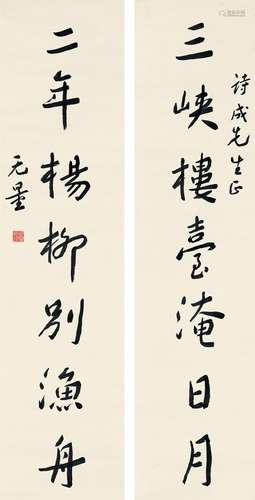 诗成先生正
三峡樓臺淹日月
二年楊柳别漁舟
无量